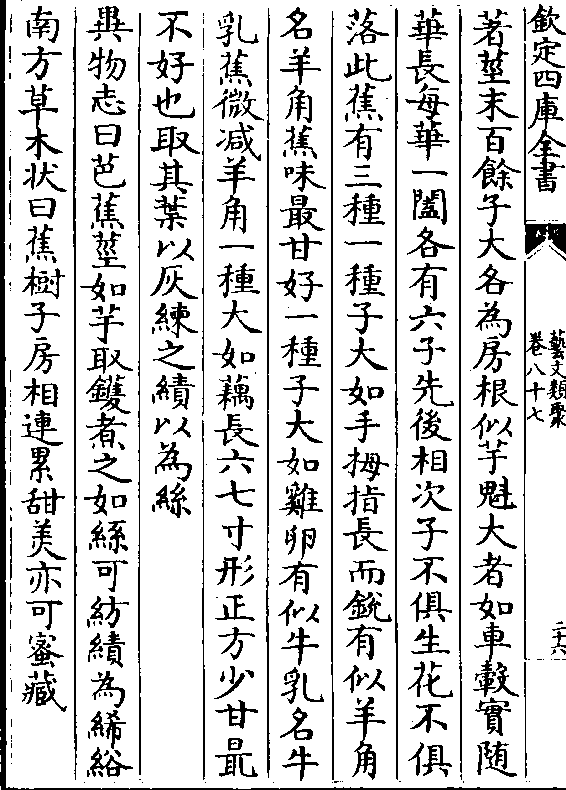 欽定四庫全書
藝文類聚
卷八十七
二十六
著莖末百餘子大各為房根似芋魁大者如車轂實隨
華長每華一闔各有六子先後相次子不俱生花不俱
落此蕉有三種一種子大如手拇指長而銳有似羊角
名羊角蕉味最甘好一種子大如雞卵有似牛乳名牛
乳蕉微减羊角一種大如藕長六七寸形正方少甘最
不好也取其葉以灰練之績以為絲
異物志曰芭蕉莖如芋取鑊煮之如絲可紡績為絺綌
南方草木状曰蕉樹子房相連累甜美亦可蜜藏